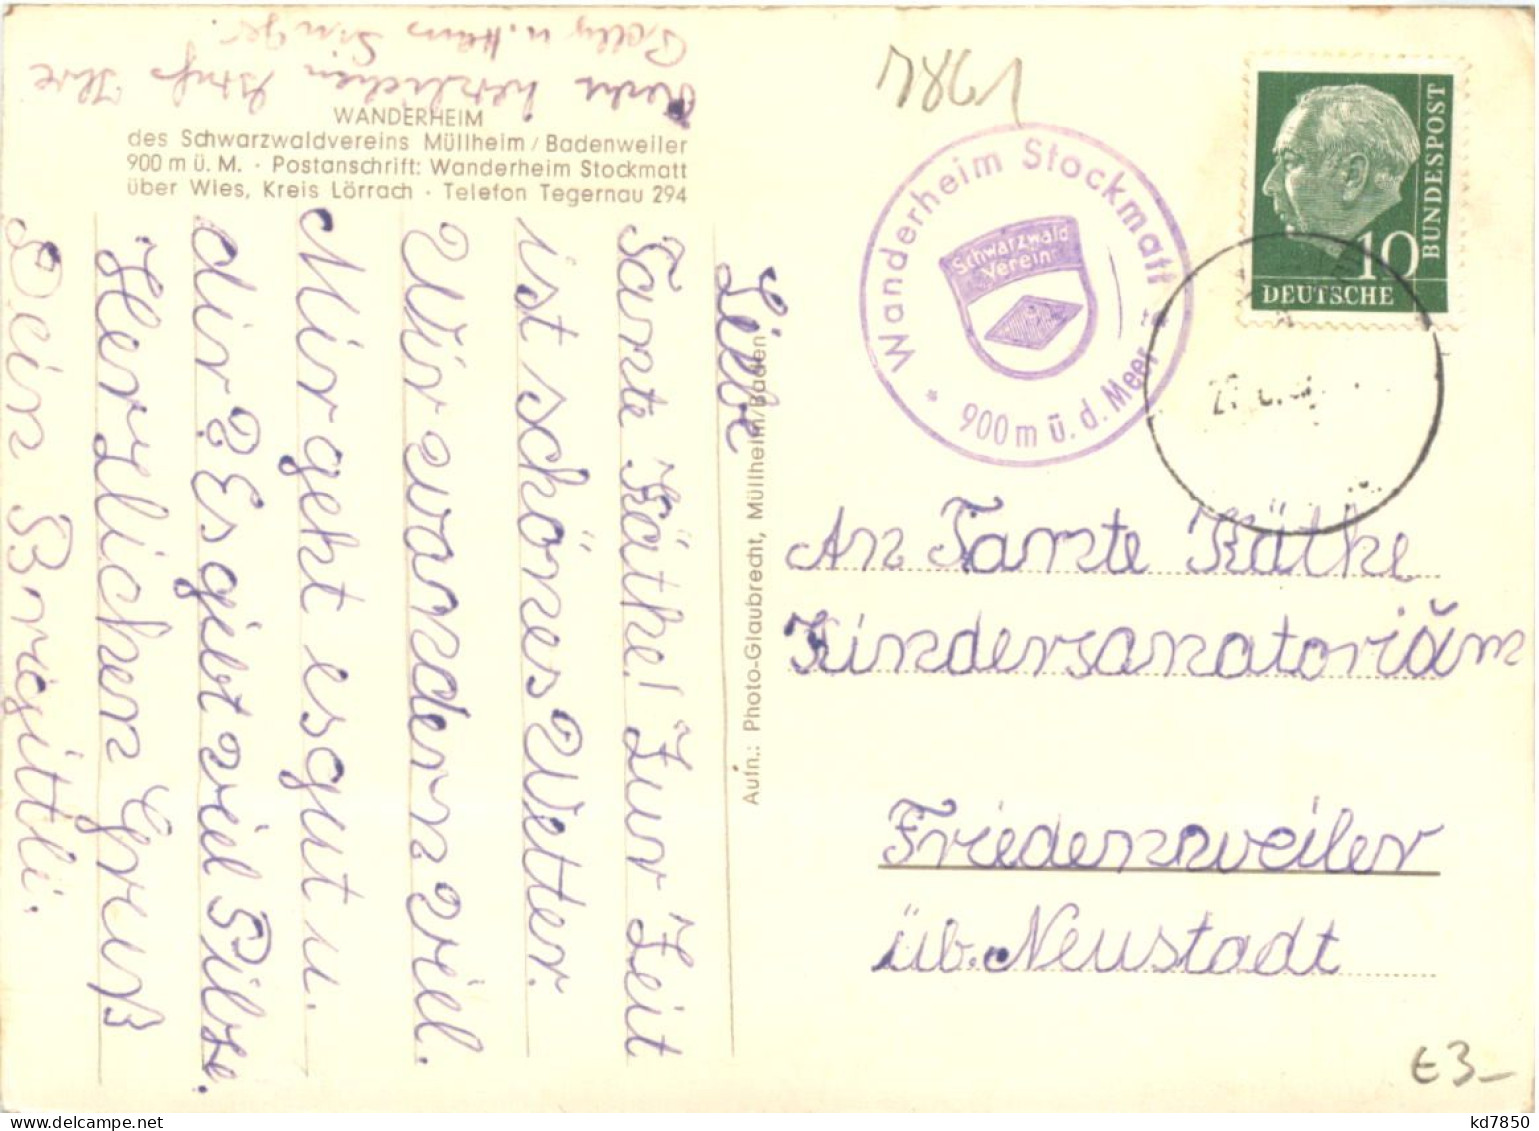 Recht herzlichen Gruß Ihre
Polly u. Hans Singer.
WANDERHEIM
des Schwarzwaldvereins Müllheim/Badenweiler
900 m ü. M. · Postanschrift: Wanderheim Stockmatt
über Wies, Kreis Lörrach · Telefon Tegernau 294
Liebe
Tante Käthe! Zur Zeit
ist schönes Wetter.
Wir wandern viel.
Mir geht es gut u.
dir? Es gibt viel Pilze.
Herzlichen Gruß
Dein Brigittli.
Aufn.: Photo-Glaubrecht, Müllheim/Baden
7861
Wanderheim Stockmatt
Schwarzwald
Verein
* 900 m ü. d. Meer *
BUNDESPOST
10
DEUTSCHE
An Tante Käthe
Kindersanatoriŭm
Friedenweiler
üb. Neustadt
€3-
kd7850